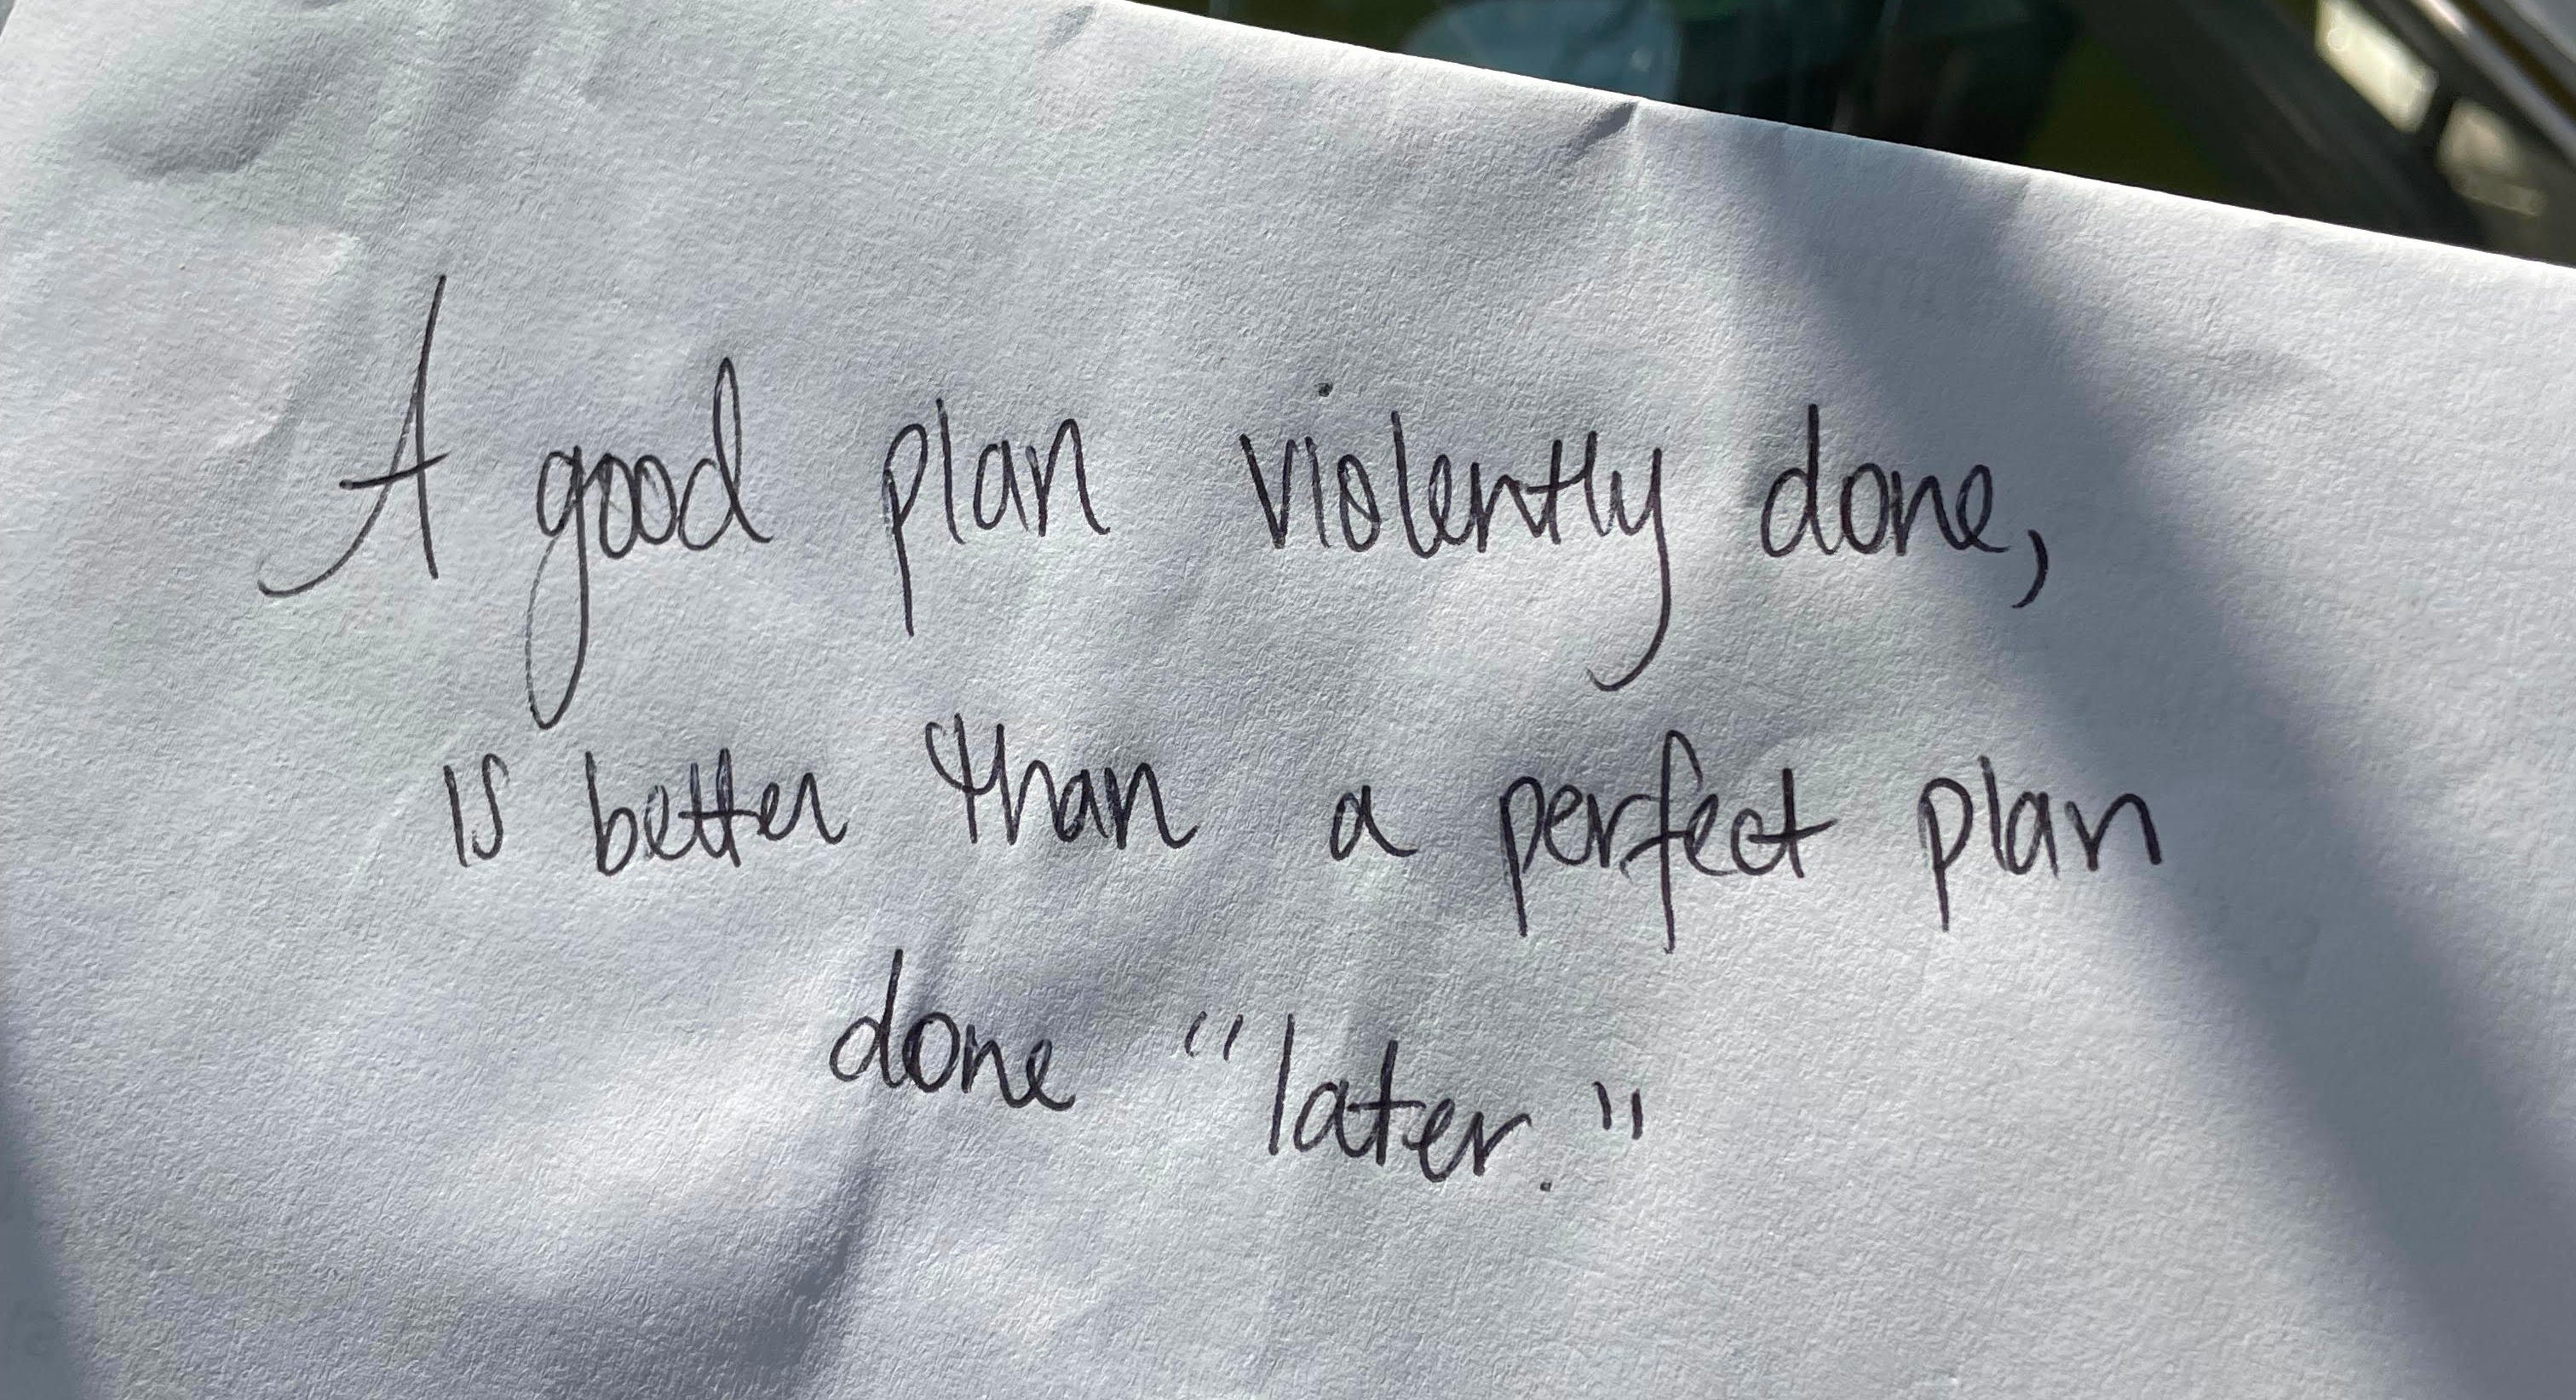 A good plan violently done,
is better than a perfect plan
done "later."